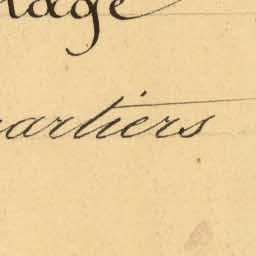 lage
artiers